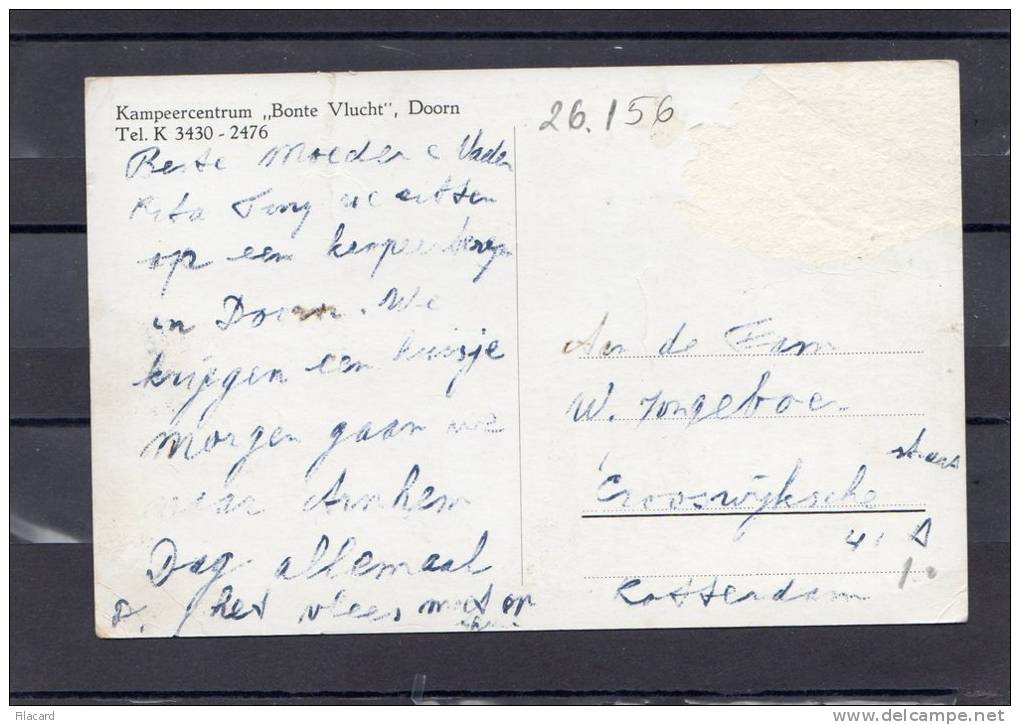 Kampeercentrum „Bonte Vlucht", Doorn
Tel. K 3430 - 2476
26.156
Beste Moeder & Vader
Rita Tony we zitten
op een
in Doorn. We
krijgen een huisje
morgen gaan we
naar Arnhem
Dag allemaal
het vlees moet op
Aan de Fam
W. Jongeboe
straat
Crooswijksche
41
Rotterdam
Filacard
www.delcampe.net